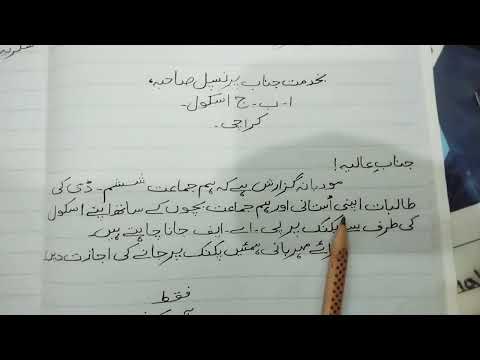 بخدمت جناب پرنسپل صاحبہ،
ا۔ب۔ج اسکول۔
کراچی۔
جنابِ عالیہ!
مودبانہ گزارش ہے کہ ہم جماعت ششم۔ ڈی کی
طالبات اپنی اُستانی اور ہم جماعت بچوں کے ساتھ اپنے اسکول
کی طرف سے پکنک پر پی۔اے۔ایف جانا چاہتے ہیں۔
مہربانی ہمیں پکنک پر جانے کی اجازت دیں۔
فقط